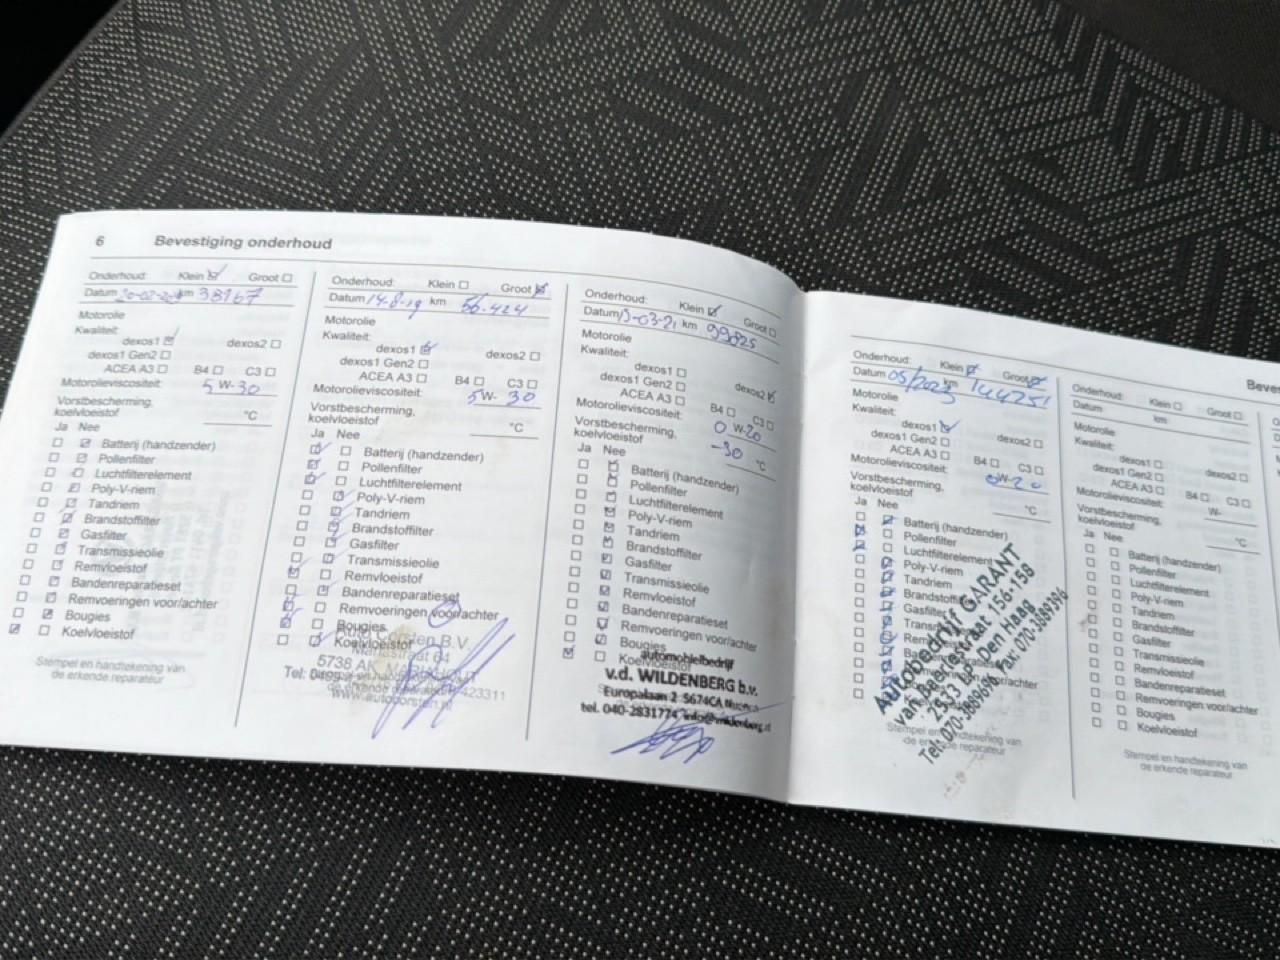 6 Bevestiging onderhoud
Onderhoud: Klein Groot
Datum km 38167
Motorolie
Kwaliteit:
dexos1 dexos2
dexos1 Gen2
ACEA A3 B4 C3
Motorolieviscositeit: 5 W- 30
Vorstbescherming,
koelvloeistof °C
Ja Nee
Batterij (handzender)
Pollenfilter
Luchtfilterelement
Poly-V-riem
Tandriem
Brandstoffilter
Gasfilter
Transmissieolie
Remvloeistof
Bandenreparatieset
Remvoeringen voor/achter
Bougies
Koelvloeistof
Stempel en handtekening van
de erkende reparateur
Onderhoud: Klein Groot
Datum 14-8-19 km 56.424
Motorolie
Kwaliteit:
dexos1 dexos2
dexos1 Gen2
ACEA A3 B4 C3
Motorolieviscositeit: 5 W- 30
Vorstbescherming,
koelvloeistof °C
Ja Nee
Batterij (handzender)
Pollenfilter
Luchtfilterelement
Poly-V-riem
Tandriem
Brandstoffilter
Gasfilter
Transmissieolie
Remvloeistof
Bandenreparatieset
Remvoeringen voor/achter
Bougies
Koelvloeistof
Auto Corsten B.V.
5738 AK
Tel: 0499
Onderhoud: Klein Groot
Datum km 99825
Motorolie
Kwaliteit:
dexos1 dexos2
dexos1 Gen2
ACEA A3 B4 C3
Motorolieviscositeit: 0 W-20
Vorstbescherming,
koelvloeistof -30 °C
Ja Nee
Batterij (handzender)
Pollenfilter
Luchtfilterelement
Poly-V-riem
Tandriem
Brandstoffilter
Gasfilter
Transmissieolie
Remvloeistof
Bandenreparatieset
Remvoeringen voor/achter
Bougies
Koelvloeistof
automobielbedrijf
v.d. WILDENBERG b.v.
Europalaan 2 5674CA Nuenen
tel. 040-2831774
Onderhoud: Klein Groot
Datum 05/2023 km 144251
Motorolie
Kwaliteit:
dexos1 dexos2
dexos1 Gen2
ACEA A3 B4 C3
Motorolieviscositeit: 0 W-20
Vorstbescherming,
koelvloeistof °C
Ja Nee
Batterij (handzender)
Pollenfilter
Luchtfilterelement
Poly-V-riem
Tandriem
Gasfilter
Autobedrijf GARANT
van Beerlestraat 156-158
2533 Den Haag
Tel: 070-3889696 Fax: 070-3889396
Stempel en handtekening van
de erkende reparateur
Onderhoud: Klein Groot
Datum km:
Motorolie
Kwaliteit:
dexos1 dexos2
dexos1 Gen2
ACEA A3 B4 C3
Motorolieviscositeit: W-
Vorstbescherming,
koelvloeistof °C
Ja Nee
Batterij (handzender)
Pollenfilter
Luchtfilterelement
Poly-V-riem
Tandriem
Brandstoffilter
Gasfilter
Transmissieolie
Remvloeistof
Bandenreparatieset
Remvoeringen voor/achter
Bougies
Koelvloeistof
Stempel en handtekening van
de erkende reparateur